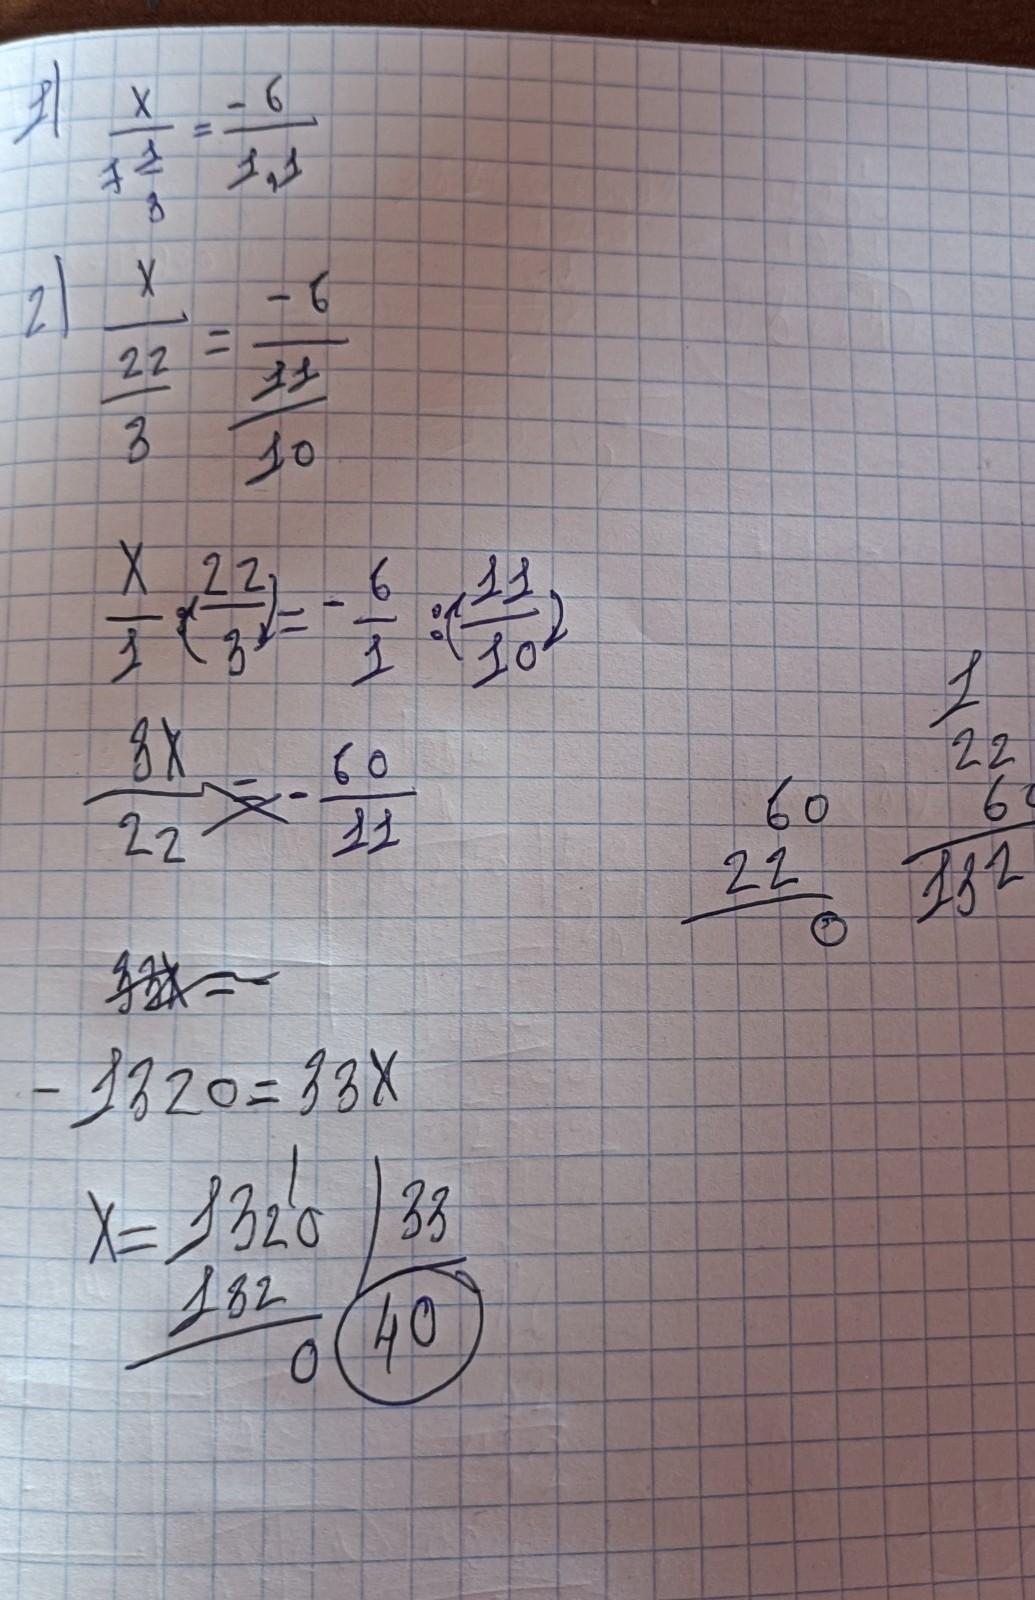 1) x / 7 1/3 = -6 / 1,1
2) x / (22/3) = -6 / (11/10)
x/1 : (22/3) = - 6/1 : (11/10)
3x/22 = - 60/11
60
22
0
1
22
60
132
33x = -
-1320 = 33x
x = 1320 | 33
132 40
0